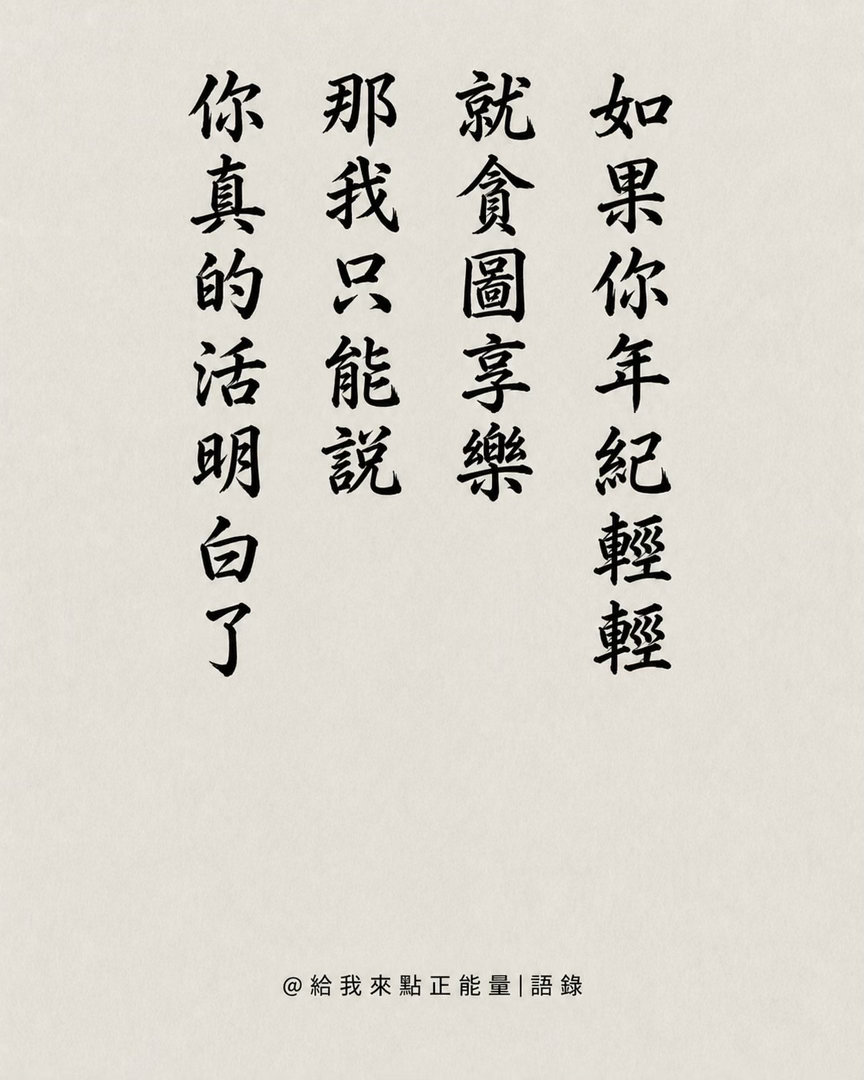 如果你年紀輕輕
就貪圖享樂
那我只能說
你真的活明白了
@給我來點正能量|語錄